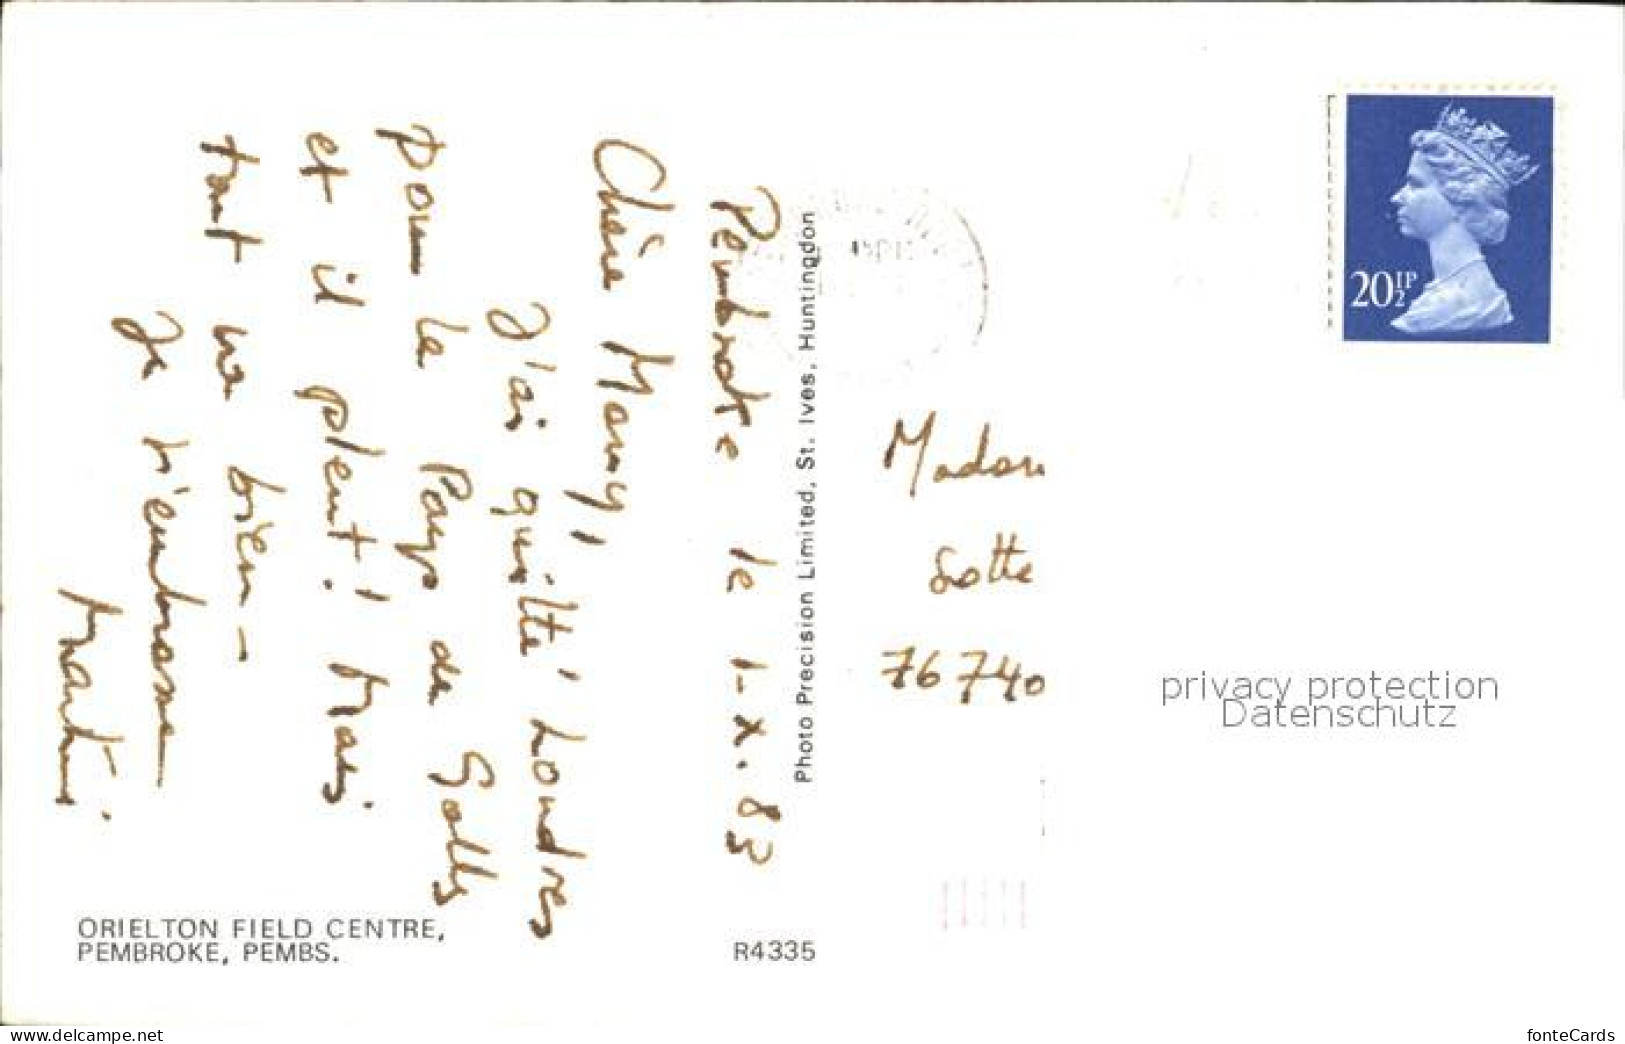 Pembroke le 1-X.83
Chère Mamy,
J'ai quitté Londres
pour le Pays de Galles
et il pleut! Mais
tout va bien -
Je t'embrasse
ORIELTON FIELD CENTRE,
PEMBROKE, PEMBS.
R4335
Photo Precision Limited, St. Ives, Huntingdon
20½P
Madam
Sotte
76740
privacy protection
Datenschutz
www.delcampe.net
fonteCards